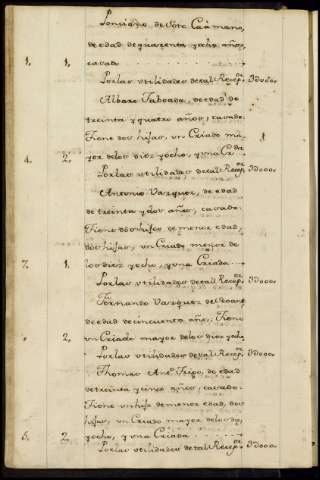 Ponciano de Soto Caamano,
de edad de quarenta y ocho años,
casado
1, 1, Por las utilidades de tal Recepr 3U000
Albaro Taboada, de edad de
treinta y quatro años, casado.
Tiene dos hijas, un Criado ma-
4. 2, yor de los diez y ocho, y una Crda
Por las utilidades de tal Recepr 3U000.
Antonio Vazquez, de edad
de treinta y dos años, casado.
Tiene dos hijos de menor edad,
dos hijas, un Criado menor de
7. 1, los diez y ocho, y una Criada
Por las utilidades de tal Recepr 3U000.
Fernando Vazquez
de edad de cincuenta años, Tiene
2, un Criado mayor de los diez y ocho
Por las utilidades de tal Recepr 3U000.
Thomas de edad
de treinta y cinco años, casado.
Tiene un hijo de menor edad, dos
hijas, un Criado mayor de los diez
5. 2, y ocho, y una Criada
Por las utilidades de tal Recepr 3U000.